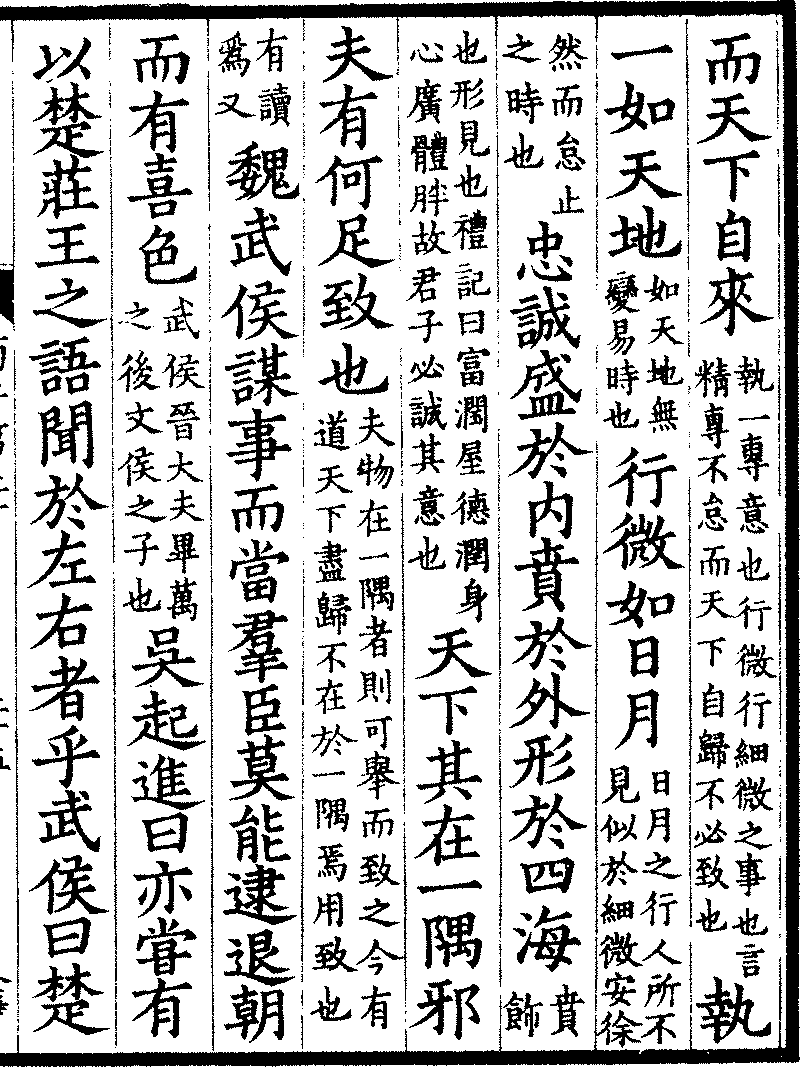 而天下自來執一專意也行微行細微之事也言精專不怠而天下自歸不必致也執
一如天地如天地無變易時也行微如日月日月之行人所不見似於細微安徐
然而怠止之時也忠誠盛於内賁於外形於四海賁飾
也形見也禮記曰富潤屋德潤身心廣體胖故君子必誠其意也天下其在一隅邪
夫有何足致也夫物在一隅者則可舉而致之今有道天下盡歸不在於一隅焉用致也
有讀爲又魏武侯謀事而當羣臣莫能逮退朝
而有喜色武侯晉大夫畢萬之後文侯之子也吳起進曰亦甞有
以楚莊王之語聞於左右者乎武侯曰楚